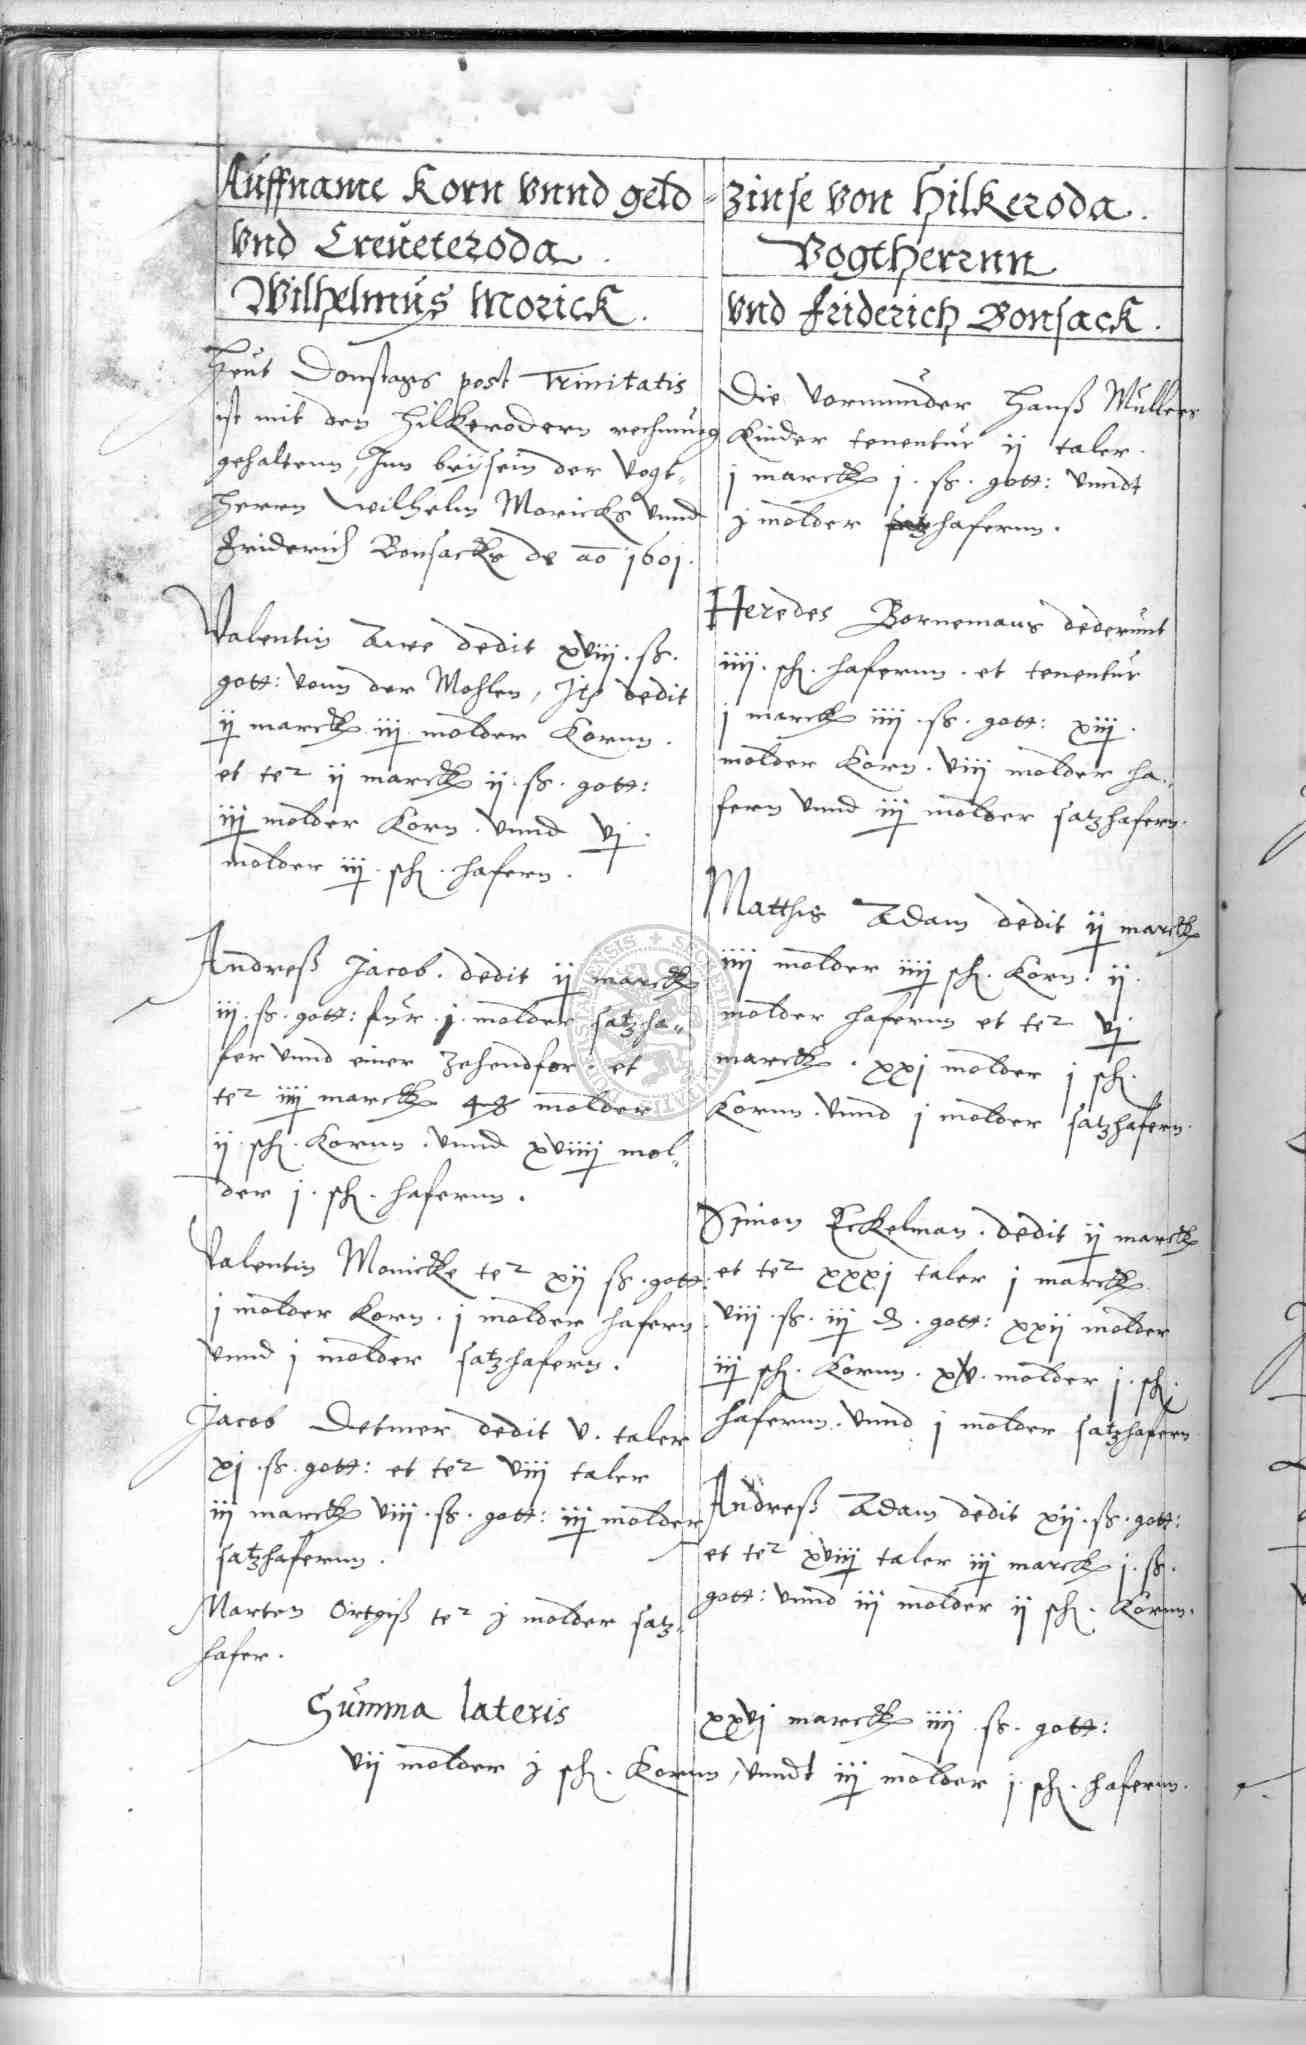 Auffname Korn vnnd geld - zinse von Hilkeroda.
vnd Creueteroda. Vogtherrnn
Wilhelmus Morick. vnd Friderich Bonsack.
Heut Donstages post Trinitatis
ist mit den Hilkerodern rechnung
gehaltenn, Inn beysein der Vogt„
herrn Wilhelm Moricks vnnd
Friderich Bonsacks de ao 1601.
Valentin Arre dedit xviii. ß.
gott: vonn der Mohlen, Ite dedit
ij marck iij molder Kornn.
et ter ij marck ij. ß. gott:
iij molder Korn. vnnd vj.
molder iij. sch. hafern.
Andreß Jacob. dedit ij marck
iij. ß. gott: fur j. molder satzha„
fer vnnd einer Zehendfor. et
ter iiij marck molder
ij. sch. Kornn. vnnd xviiij mol„
der j. sch. hafernn.
Valentin Monicke ter xij ß. gott:
j molder Korn. j molder hafern
vnnd j molder satzhafern.
Jacob Detmer dedit v. taler
xj. ß. gott: et ter viij taler
iij marck viij. ß. gott: iij molder
satzhafernn.
Marten Ortgiß ter j molder satz„
hafer.
Die Vormunder Hanß Mullers
Kinder tenentur ij taler.
j marck j. ß. gott: vnndt
j molder satzhafernn.
Heredes Bornemans dederunt
iiij. sch. hafernn. et tenentur
j marck iiij. ß. gott: xiij.
molder Korn. viij molder ha„
fern vnnd iij molder satzhafern.
Matthis Adam dedit ij marck
iiij molder iiij sch. Korn. ij.
molder hafernn et ter vj
marck. xxj molder j sch.
Kornn. vnnd j molder satzhafern.
Simon Eckelman. dedit ij marck
et ter xxxj taler j marck
viij. ß. iij d. gott: xxij molder
iij sch. Kornn. xv. molder j. sch.
hafernn. vnnd j molder satzhafern
Andreß Adam dedit xij. ß. gott:
et ter xviiij taler iij marck j. ß.
gott: vnnd iij molder ij sch. Kornn.
Summa lateris xxvj marck iiij. ß. gott:
vij molder j sch. Kornn, vnndt iij molder j. sch. hafernn.